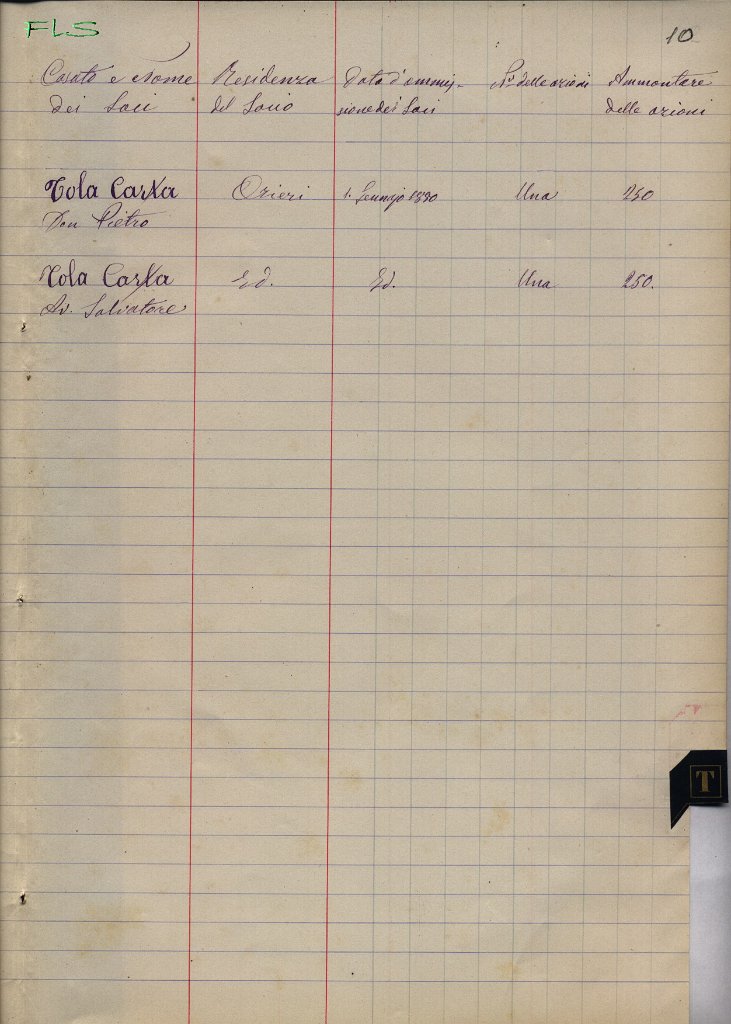 FLS
10
Casato e Nome Residenza Data d'ammis- N° delle azioni Ammontare
dei Soci del Socio sione dei Soci delle azioni
Tola Carta Ozieri 1. Gennajo 1890 Una 250
Don Pietro
Tola Carta Id. Id. Una 250.
Av. Salvatore
T